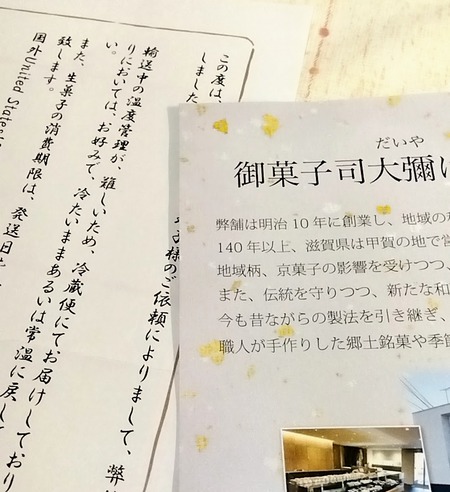 この度は、
子様のご依頼によりまして、弊
しました
輸送中の温度管理が、難しいため、冷蔵便にてお届けしており
りにおいては、お好みで、冷たいままあるいは常温に戻して
い。
また、生菓子の消費期限は、発送日
致します。
国外United States
だいや
御菓子司大彌
弊舗は明治10年に創業し、地域の
140年以上、滋賀県は甲賀の地で営
地域柄、京菓子の影響を受けつつ、
また、伝統を守りつつ、新たな和
今も昔ながらの製法を引き継ぎ、
職人が手作りした郷土銘菓や季節